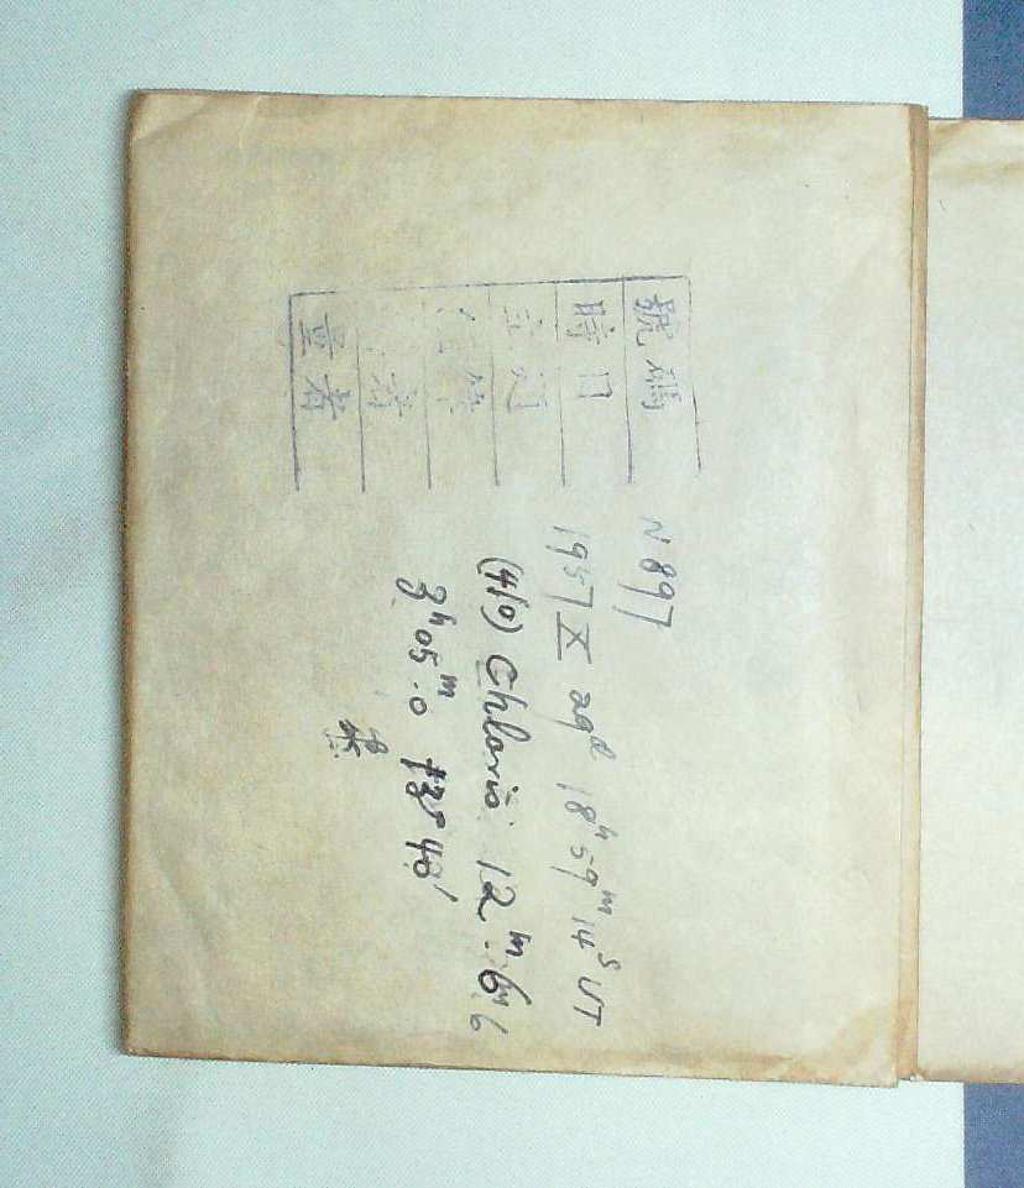 號碼 N 897
時日 1957 X 29ᵈ 18ʰ 59ᵐ 14ˢ UT
(410) Chloris 12ᵐ.6
者 3ʰ05ᵐ.0 +3°48'
量者